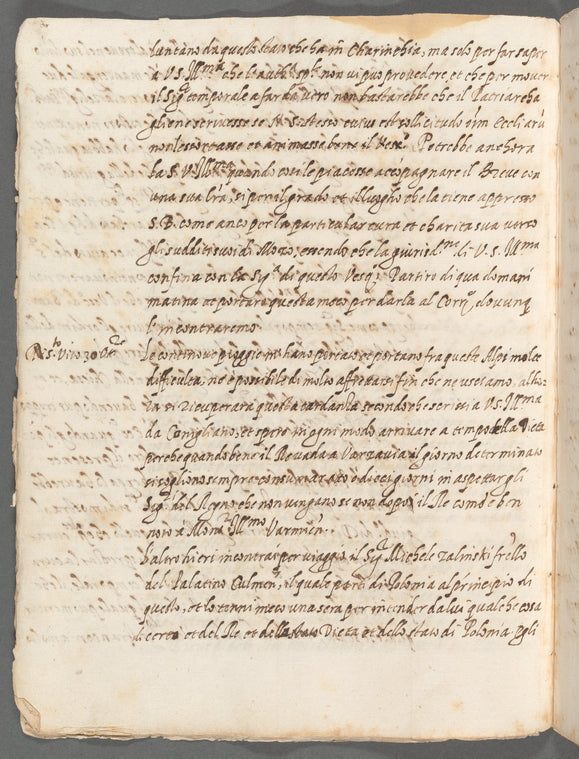 luntano da questo stato che ha in Charinthia, ma solo per far saper
à V.S. Ill.ma che l'auth.tà sp.le non vi può provedere, et che per mover
il Sig.r temporale a far da vero non bastarebbe che il Patriarcha
gliene scrivesse se S. S.
non l'essortasse et animasse bene il Potrebbe anchora
la S. V. Ill.ma quando così le piacesse accompagnare il Breve con
una sua l'ra, sì per il grado et il luogho che la tiene appresso
S. B. come anco per la particular cura et charità sua verso
gli sudditi suoi di Mozo, essendo che la giurisd.ne di V. S. Ill.ma
confina con la di questo Partirò di qua domani
matina et portarò questa meco per darla al Corr.r dovunq.
l'incontraremo
Di S.to Vito 30
Le continove pioggie m'hano portato et portano fra queste Alpi molte
difficultà, né è possibile di molto affrettarsi fin che ne usciamo, alhora
si ricuperarà questa tardanza secondo che scrivi à V.S. Ill.ma
da Conigliano, et spero in ogni modo arrivare a tempo della Dieta
perche quando bene il Re vada a Varzavia il giorno determinato
si sogliono sempre consumar otto ò dieci giorni in aspettar gli
Sig.ri del Regno che non vengano se non dopo il Re come è ben
noto a Mons.r Ill.mo Varmien.
L'altro hieri incontrai per viaggio il Sig.r Michele Zalinski fr'ello
del Palatino Culmen., il quale partì di Polonia al principio di
questo, et lo tenni meco una sera per intender da lui qualche cosa
di certo et del Re et della Dieta et dello stato di Polonia. Egli